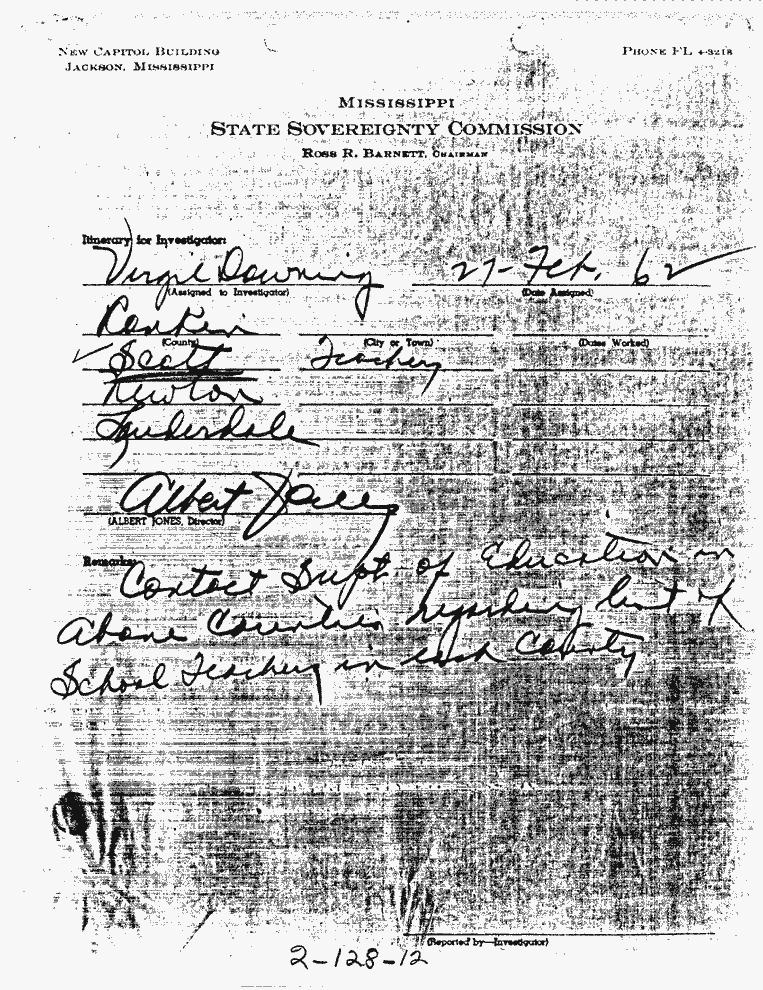 NEW CAPITOL BUILDING
JACKSON, MISSISSIPPI
PHONE FL 4-3218
MISSISSIPPI
STATE SOVEREIGNTY COMMISSION
ROSS R. BARNETT, CHAIRMAN
Itinerary for Investigator:
Virgil Downing 27-Feb. 62
(Assigned to Investigator) (Date Assigned)
Rankin
(County) (City or Town) (Dates Worked)
✓ Scott Teachers
Newton
Lauderdale
Albert Jones
(ALBERT JONES, Director)
Remarks:
Contact Supt of Education in
above Counties regarding list of
School Teachers in each County
(Reported by—Investigator)
2-128-12